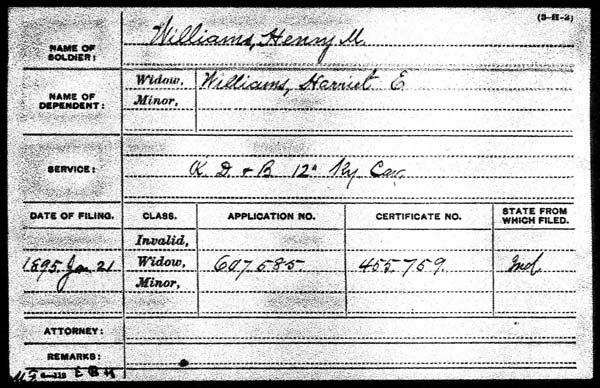 (3-H-2)
NAME OF SOLDIER: Williams, Henry M.
NAME OF DEPENDENT: Widow, Williams, Harriet E
Minor,
SERVICE: K. D. + B 12" Ky Cav.
DATE OF FILING. CLASS. APPLICATION NO. CERTIFICATE NO. STATE FROM WHICH FILED.
Invalid,
1895. Jan 21 Widow, 607.585. 455.759. Ind
Minor,
ATTORNEY:
REMARKS: